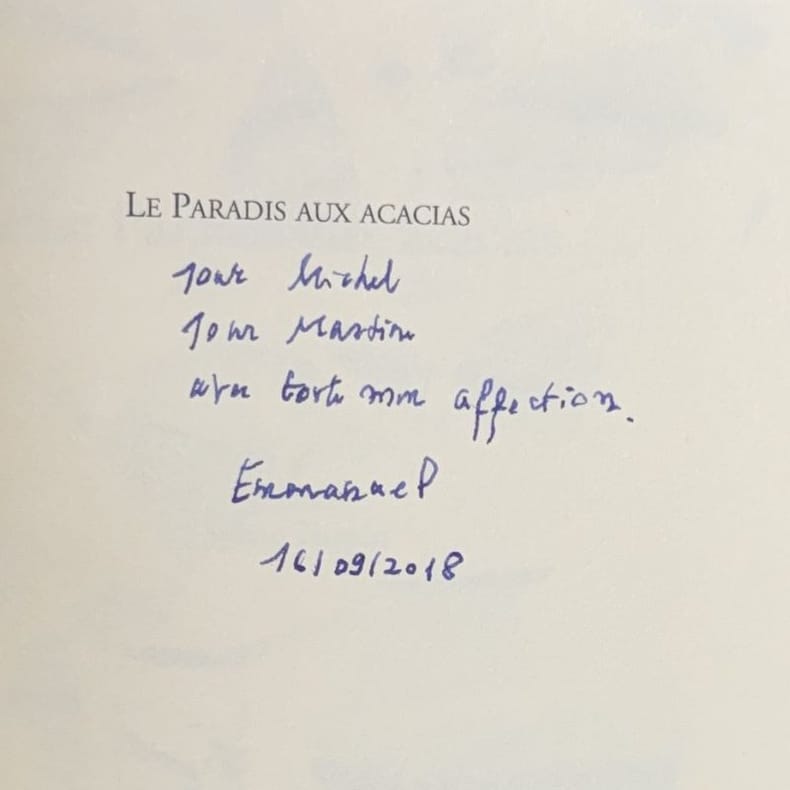 LE PARADIS AUX ACACIAS
Pour Michel
Pour Martine
avec toute mon affection.
Emmanuel
16/09/2018